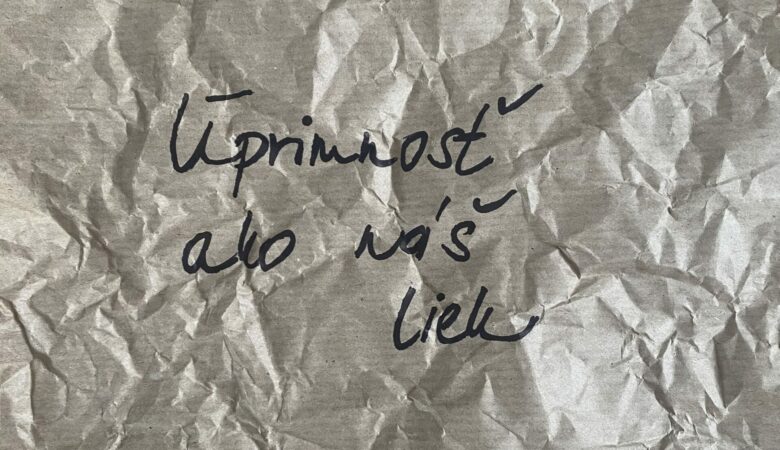 Úprimnosť
ako náš
liek